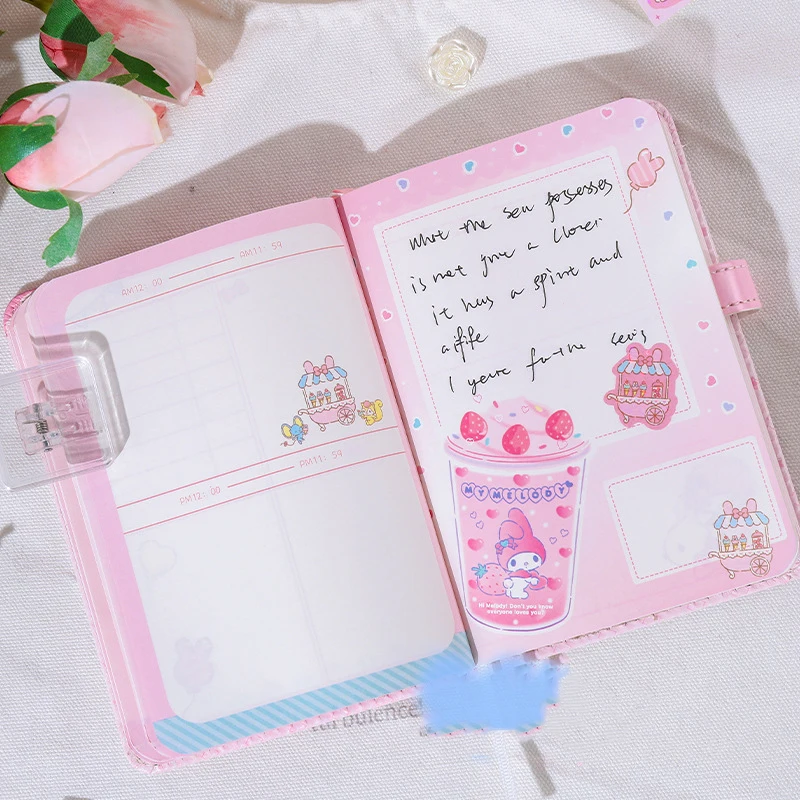 AM12: 00 AM11: 59
PM12: 00 PM11: 59
what the sea possesses
is not just a
it has a spirit and
a life
I for the
MY MELODY
Hi Melody! Don't you know
everyone loves you?
turbulence